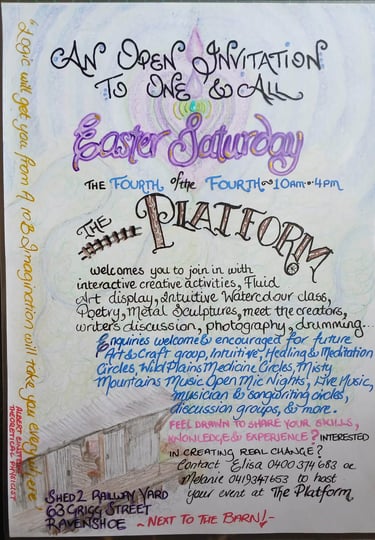 An Open Invitation
To One & All
Easter Saturday
THE FOURTH of the FOURTH ~ 10am - 4pm
THE PLATFORM
welcomes you to join in with
interactive creative activities, Fluid
Art display, Intuitive Watercolour class,
Poetry, Metal Sculptures, meet the creators,
writers discussion, photography, drumming...
Enquiries welcome & encouraged for future
Art & Craft group, Intuitive, Healing & Meditation
Circles, Wild Plains Medicine Circles, Misty
Mountains Music Open Mic Nights, Live Music,
musician & songwriting circles,
discussion groups, & more.
FEEL DRAWN TO SHARE YOUR SKILLS,
KNOWLEDGE & EXPERIENCE? INTERESTED
IN CREATING REAL CHANGE?
Contact Elisa 0400 374 683 or
Melanie 0419347653 to host
your event at The Platform
SHED 2 RAILWAY YARD
63 GRIGG STREET
RAVENSHOE
~NEXT TO THE BARN!~
"Logic will get you from A to B. Imagination will take you everywhere."
ALBERT EINSTEIN
THEORETICAL PHYSICIST